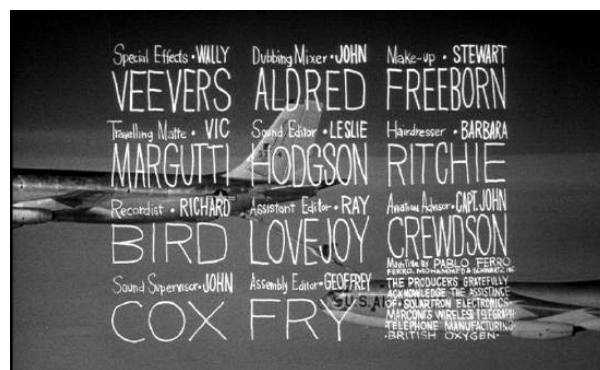 Special Effects • WALLY
VEEVERS
Travelling Matte • VIC
MARGUTTI
Recordist • RICHARD
BIRD
Sound Supervisor • JOHN
COX
Dubbing Mixer • JOHN
ALDRED
Sound Editor • LESLIE
HODGSON
Assistant Editor • RAY
LOVEJOY
Assembly Editor • GEOFFREY
FRY
Make-up • STEWART
FREEBORN
Hairdresser • BARBARA
RITCHIE
Aviation Advisor • CAPT. JOHN
CREWDSON
Main Title By PABLO FERRO
FERRO, MOHAMMED & SCHWARTZ INC
THE PRODUCERS GRATEFULLY
ACKNOWLEDGE THE ASSISTANCE
OF • SOLARTRON ELECTRONICS •
MARCONI'S WIRELESS TELEGRAPH
TELEPHONE MANUFACTURING •
• BRITISH OXYGEN •
U.S. AI